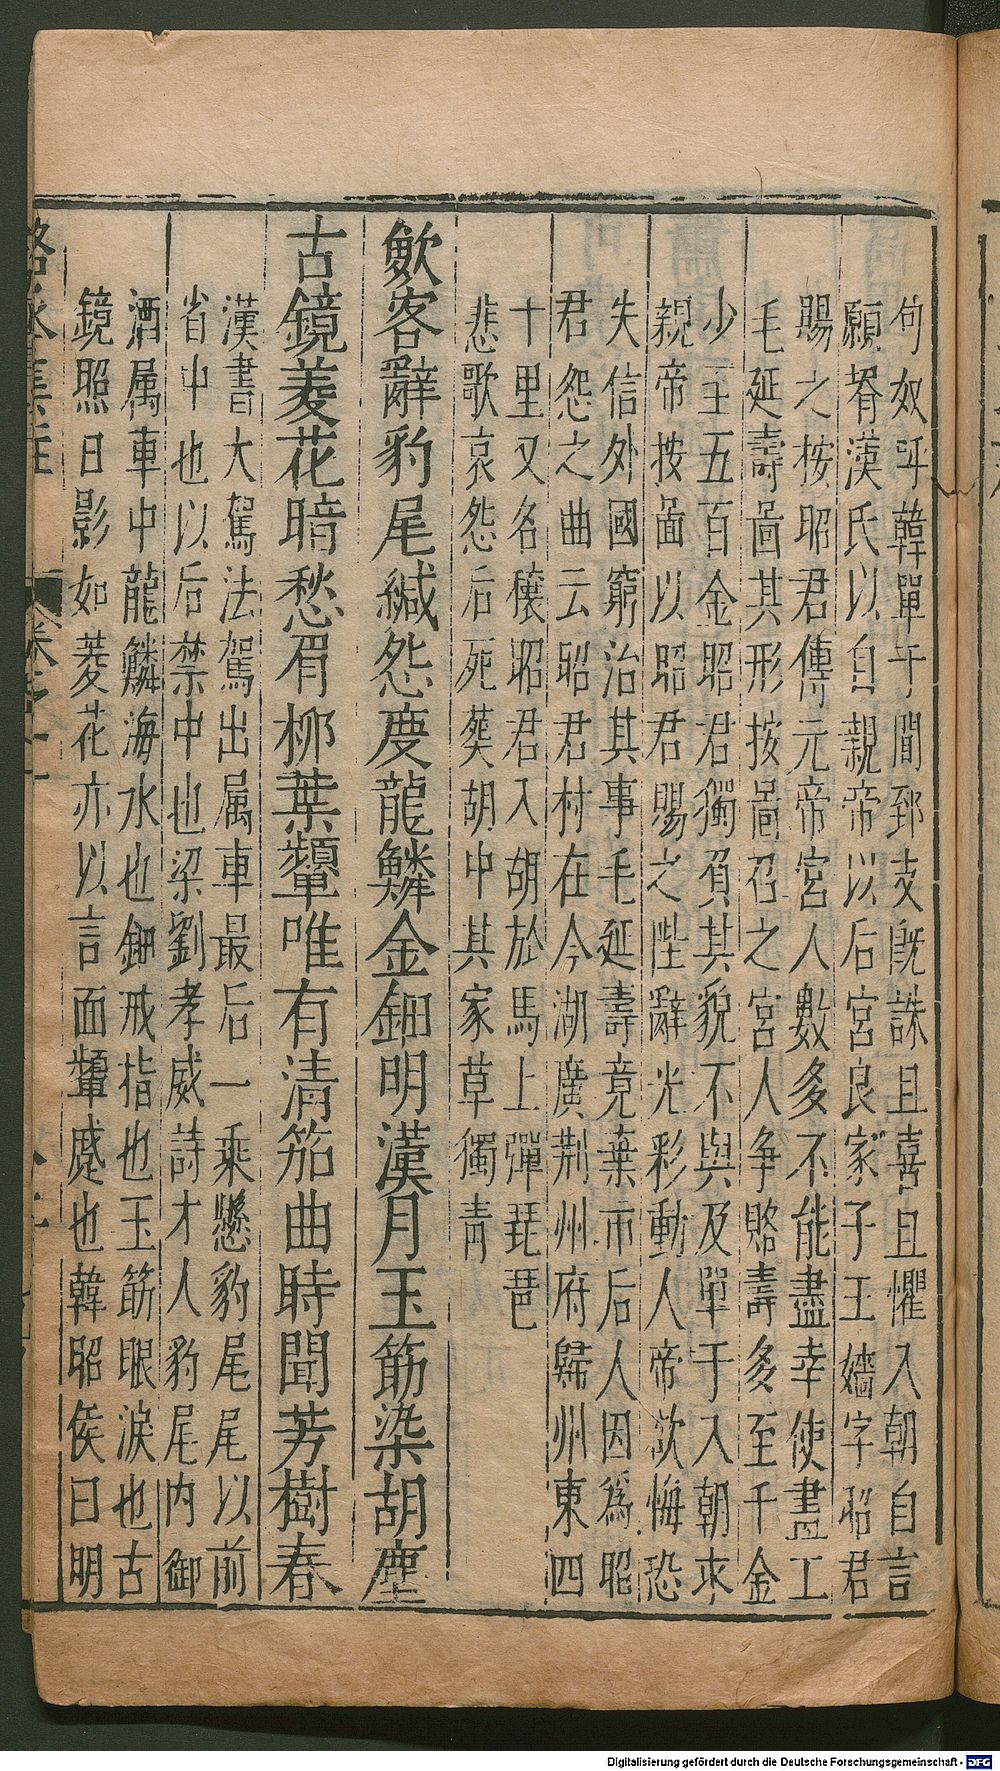 匈奴呼韓單于間郅支旣誅且喜且懼入朝自言
願壻漢氏以自親帝以后宮良家子王嬙字昭君
賜之按昭君傳元帝宮人數多不能盡幸使畫工
毛延壽啚其形按啚召之宮人争賂壽多至千金
少至五百金昭君獨負其貌不與及單于入朝求
親帝按啚以昭君賜之陛辭光彩動人帝欲悔恐
失信外國窮治其事毛延壽竟棄市后人因爲昭
君怨之曲云昭君村在今湖廣荆州府歸州東四
十里又名穰昭君入胡於馬上彈琵琶
悲歌哀怨后死葬胡中其家草獨青
歛客辭豹尾緘怨度龍鱗金鈿明漢月玉筯染胡塵
古鏡菱花暗愁眉柳葉顰唯有清笳曲時聞芳樹春
漢書大駕法駕出属車最后一乘懸豹尾尾以前
省中也以后禁中也梁劉孝威詩才人豹尾内御
酒属車中龍鱗海水也鈿戒指也玉筯眼淚也古
鏡照日影如菱花亦以言面顰蹙也韓昭侯曰明
Digitalisierung gefördert durch die Deutsche Forschungsgemeinschaft - DFG